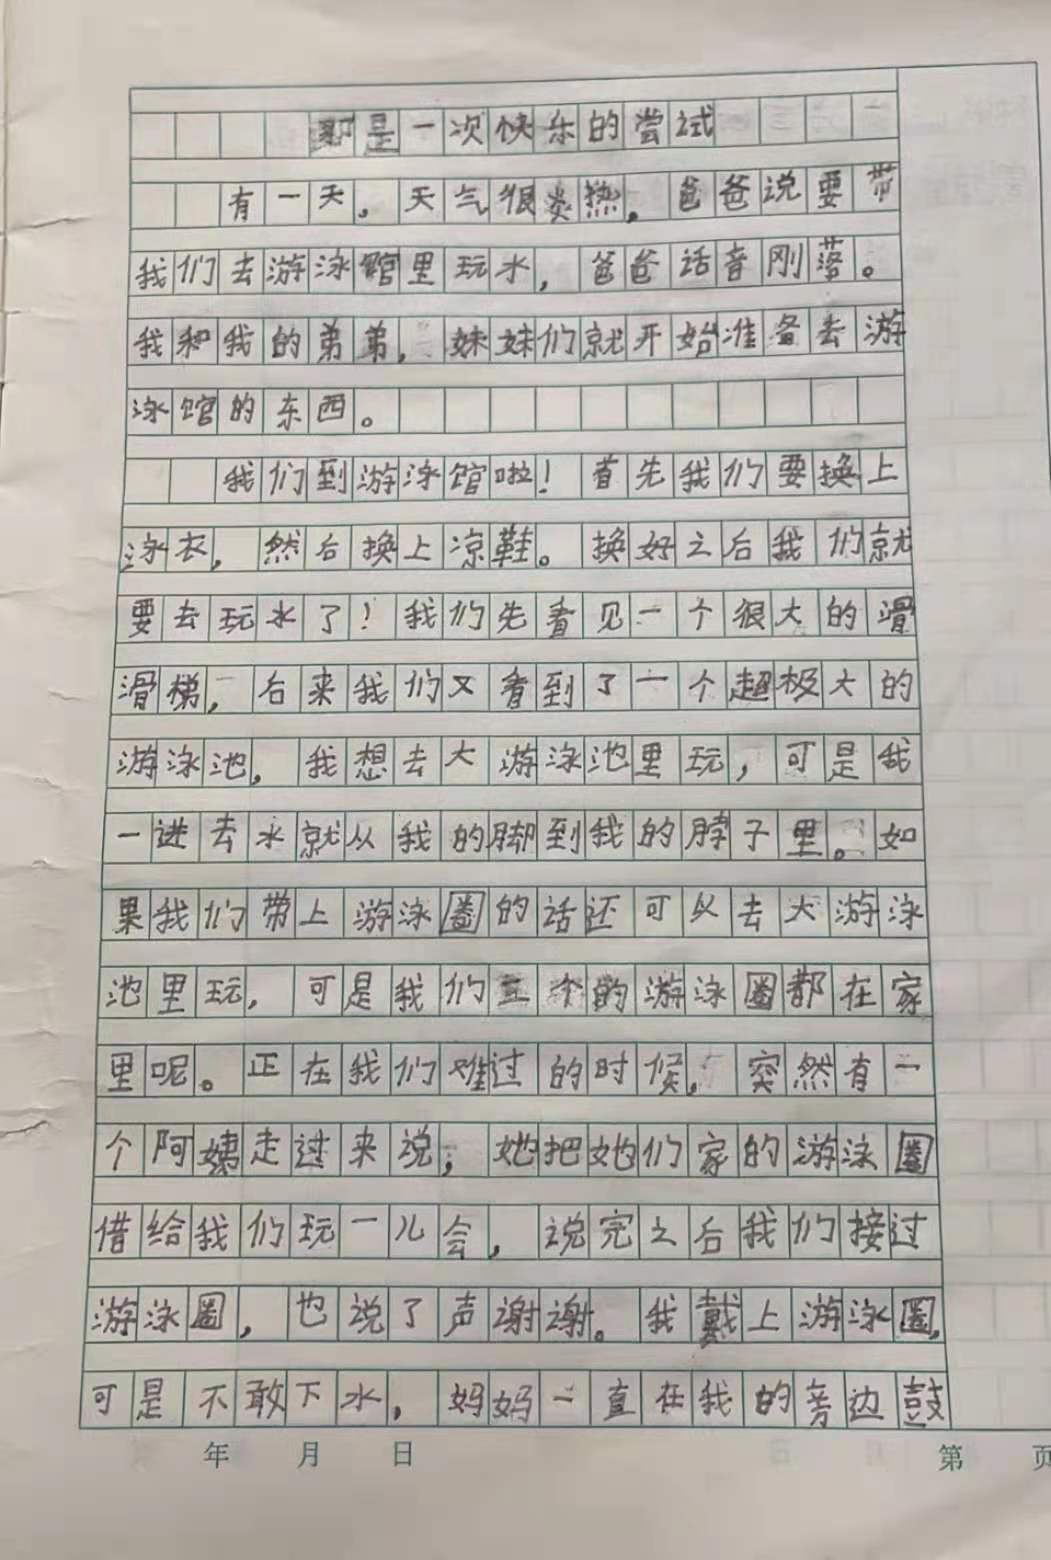 那是一次快乐的尝试
有一天。天气很炎热，爸爸说要带
我们去游泳馆里玩水，爸爸话音刚落。
我和我的弟弟，妹妹们就开始准备去游
泳馆的东西。
我们到游泳馆啦！首先我们要换上
泳衣，然后换上凉鞋。换好之后我们就
要去玩水了！我们先看见一个很大的滑
滑梯，后来我们又看到了一个超极大的
游泳池，我想去大游泳池里玩，可是我
一进去水就从我的脚到我的脖子里。如
果我们带上游泳圈的话还可以去大游泳
池里玩，可是我们三个的游泳圈都在家
里呢。正在我们难过的时候，突然有一
个阿姨走过来说；她把她们家的游泳圈
借给我们玩一儿会，说完之后我们接过
游泳圈，也说了声谢谢。我戴上游泳圈，
可是不敢下水，妈妈一直在我的旁边鼓
年 月 日 第 页